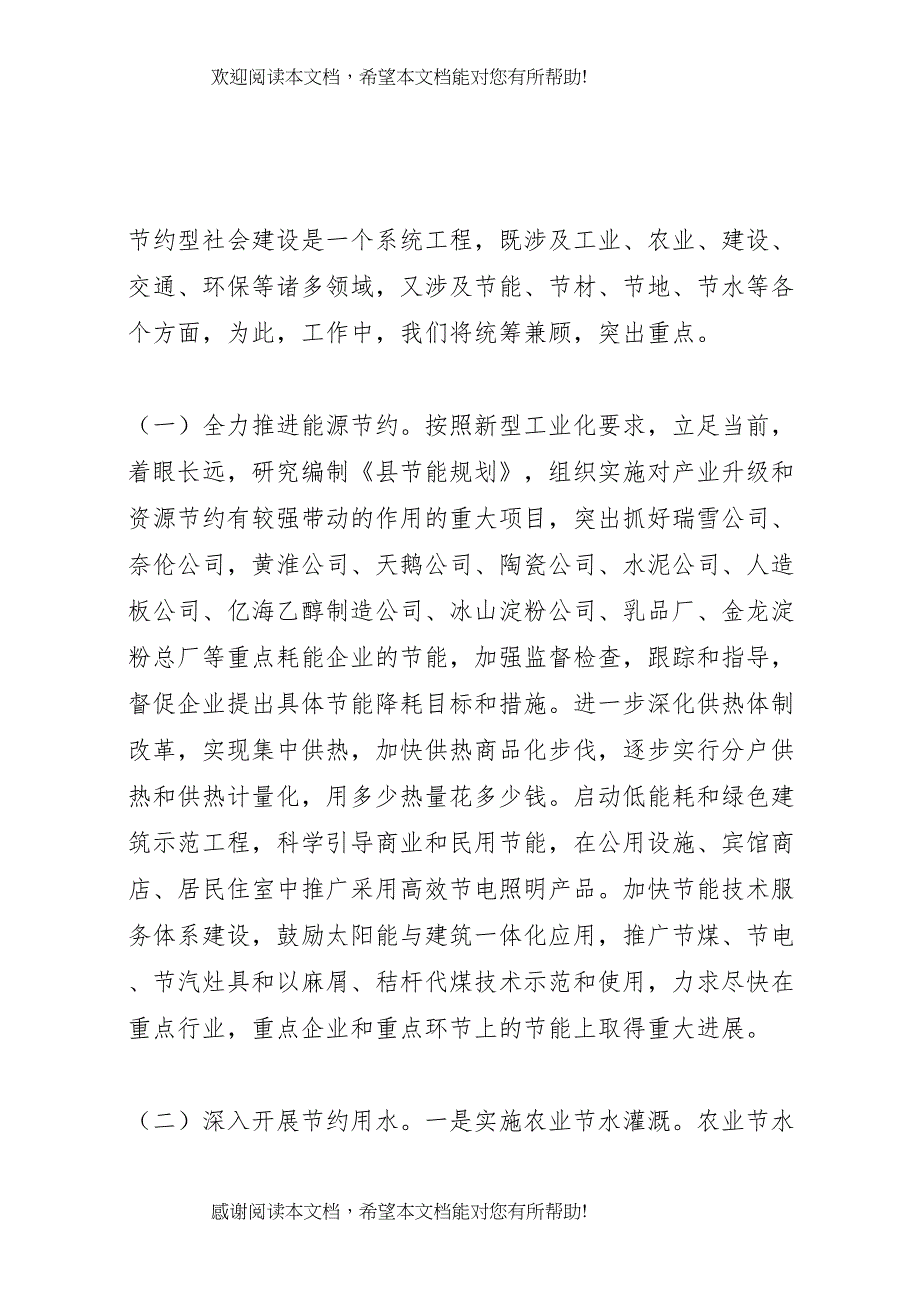 欢迎阅读本文档，希望本文档能对您有所帮助!
节约型社会建设是一个系统工程，既涉及工业、农业、建设、
交通、环保等诸多领域，又涉及节能、节材、节地、节水等各
个方面，为此，工作中，我们将统筹兼顾，突出重点。
（一）全力推进能源节约。按照新型工业化要求，立足当前，
着眼长远，研究编制《县节能规划》，组织实施对产业升级和
资源节约有较强带动的作用的重大项目，突出抓好瑞雪公司、
奈伦公司，黄淮公司、天鹅公司、陶瓷公司、水泥公司、人造
板公司、亿海乙醇制造公司、冰山淀粉公司、乳品厂、金龙淀
粉总厂等重点耗能企业的节能，加强监督检查，跟踪和指导，
督促企业提出具体节能降耗目标和措施。进一步深化供热体制
改革，实现集中供热，加快供热商品化步伐，逐步实行分户供
热和供热计量化，用多少热量花多少钱。启动低能耗和绿色建
筑示范工程，科学引导商业和民用节能，在公用设施、宾馆商
店、居民住室中推广采用高效节电照明产品。加快节能技术服
务体系建设，鼓励太阳能与建筑一体化应用，推广节煤、节电
、节汽灶具和以麻屑、秸杆代煤技术示范和使用，力求尽快在
重点行业，重点企业和重点环节上的节能上取得重大进展。
（二）深入开展节约用水。一是实施农业节水灌溉。农业节水
感谢阅读本文档，希望本文档能对您有所帮助!